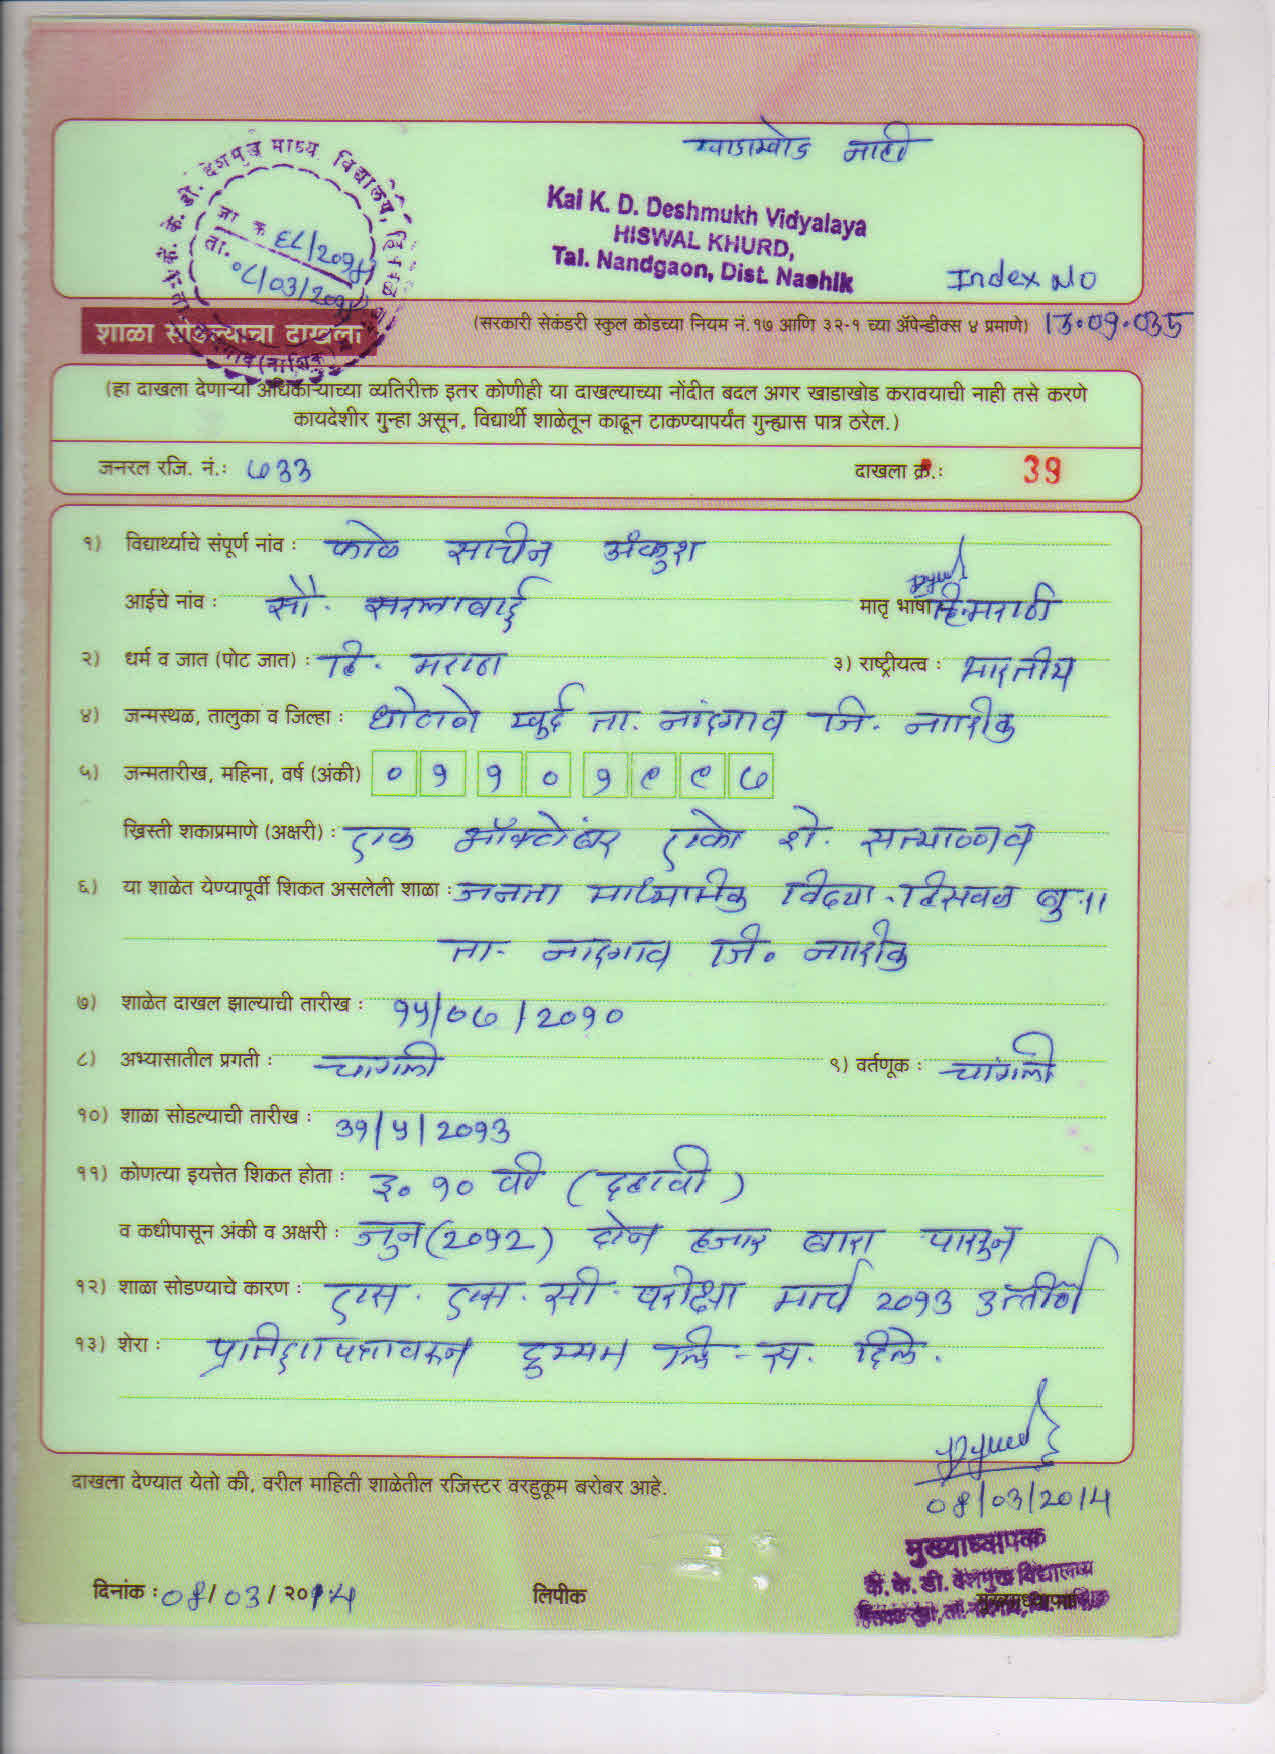 खाडाखोड नाही
Kai K. D. Deshmukh Vidyalaya
HISWAL KHURD,
Tal. Nandgaon, Dist. Nashik
Index NO
जा क्र ६८/२०१४
ता. ०८/०३/२०१४
शाळा सोडल्याचा दाखला
(सरकारी सेकंडरी स्कुल कोडच्या नियम नं. १७ आणि ३२-१ च्या ॲपेन्डीक्स ४ प्रमाणे) 13.09.035
(हा दाखला देणाऱ्या अधिकाऱ्याच्या व्यतिरीक्त इतर कोणीही या दाखल्याच्या नोंदीत बदल अगर खाडाखोड करावयाची नाही तसे करणे
कायदेशीर गुन्हा असून, विद्यार्थी शाळेतून काढून टाकण्यापर्यंत गुन्ह्यास पात्र ठरेल.)
जनरल रजि. नं.: ७३३ दाखला क्र.: 39
१) विद्यार्थ्याचे संपूर्ण नांव : काळे सचिन अंकुश
आईचे नांव : सौ. सरलाबाई मातृ भाषा मराठी
२) धर्म व जात (पोट जात) : हिं. मराठा ३) राष्ट्रीयत्व : भारतीय
४) जन्मस्थळ, तालुका व जिल्हा : धोटाणे खुर्द ता. नांदगाव जि. नाशिक
५) जन्मतारीख, महिना, वर्ष (अंकी) ०१ १० १९९७
ख्रिस्ती शकाप्रमाणे (अक्षरी) : एक ऑक्टोबर एकोणीशे सत्याण्णव
६) या शाळेत येण्यापूर्वी शिकत असलेली शाळा : जनता माध्यमिक विद्या. हिसवळ बु.॥
ता. नांदगाव जि. नाशिक
७) शाळेत दाखल झाल्याची तारीख : १५/०७/२०१०
८) अभ्यासातील प्रगती : चांगली ९) वर्तणूक : चांगली
१०) शाळा सोडल्याची तारीख : ३१/५/२०१३
११) कोणत्या इयत्तेत शिकत होता : इ. १० वी (दहावी)
व कधीपासून अंकी व अक्षरी : जुन (२०१२) दोन हजार बारा पासून
१२) शाळा सोडण्याचे कारण : एस. एस. सी. परीक्षा मार्च २०१३ उत्तीर्ण
१३) शेरा : प्रतिज्ञा पत्रावरून दुय्यम दिले.
दाखला देण्यात येतो की, वरील माहिती शाळेतील रजिस्टर वरहुकूम बरोबर आहे.
08/03/2014
मुख्याध्यापक
कै. के. डी. देशमुख विद्यालय
दिनांक : 08/03/२०14 लिपीक